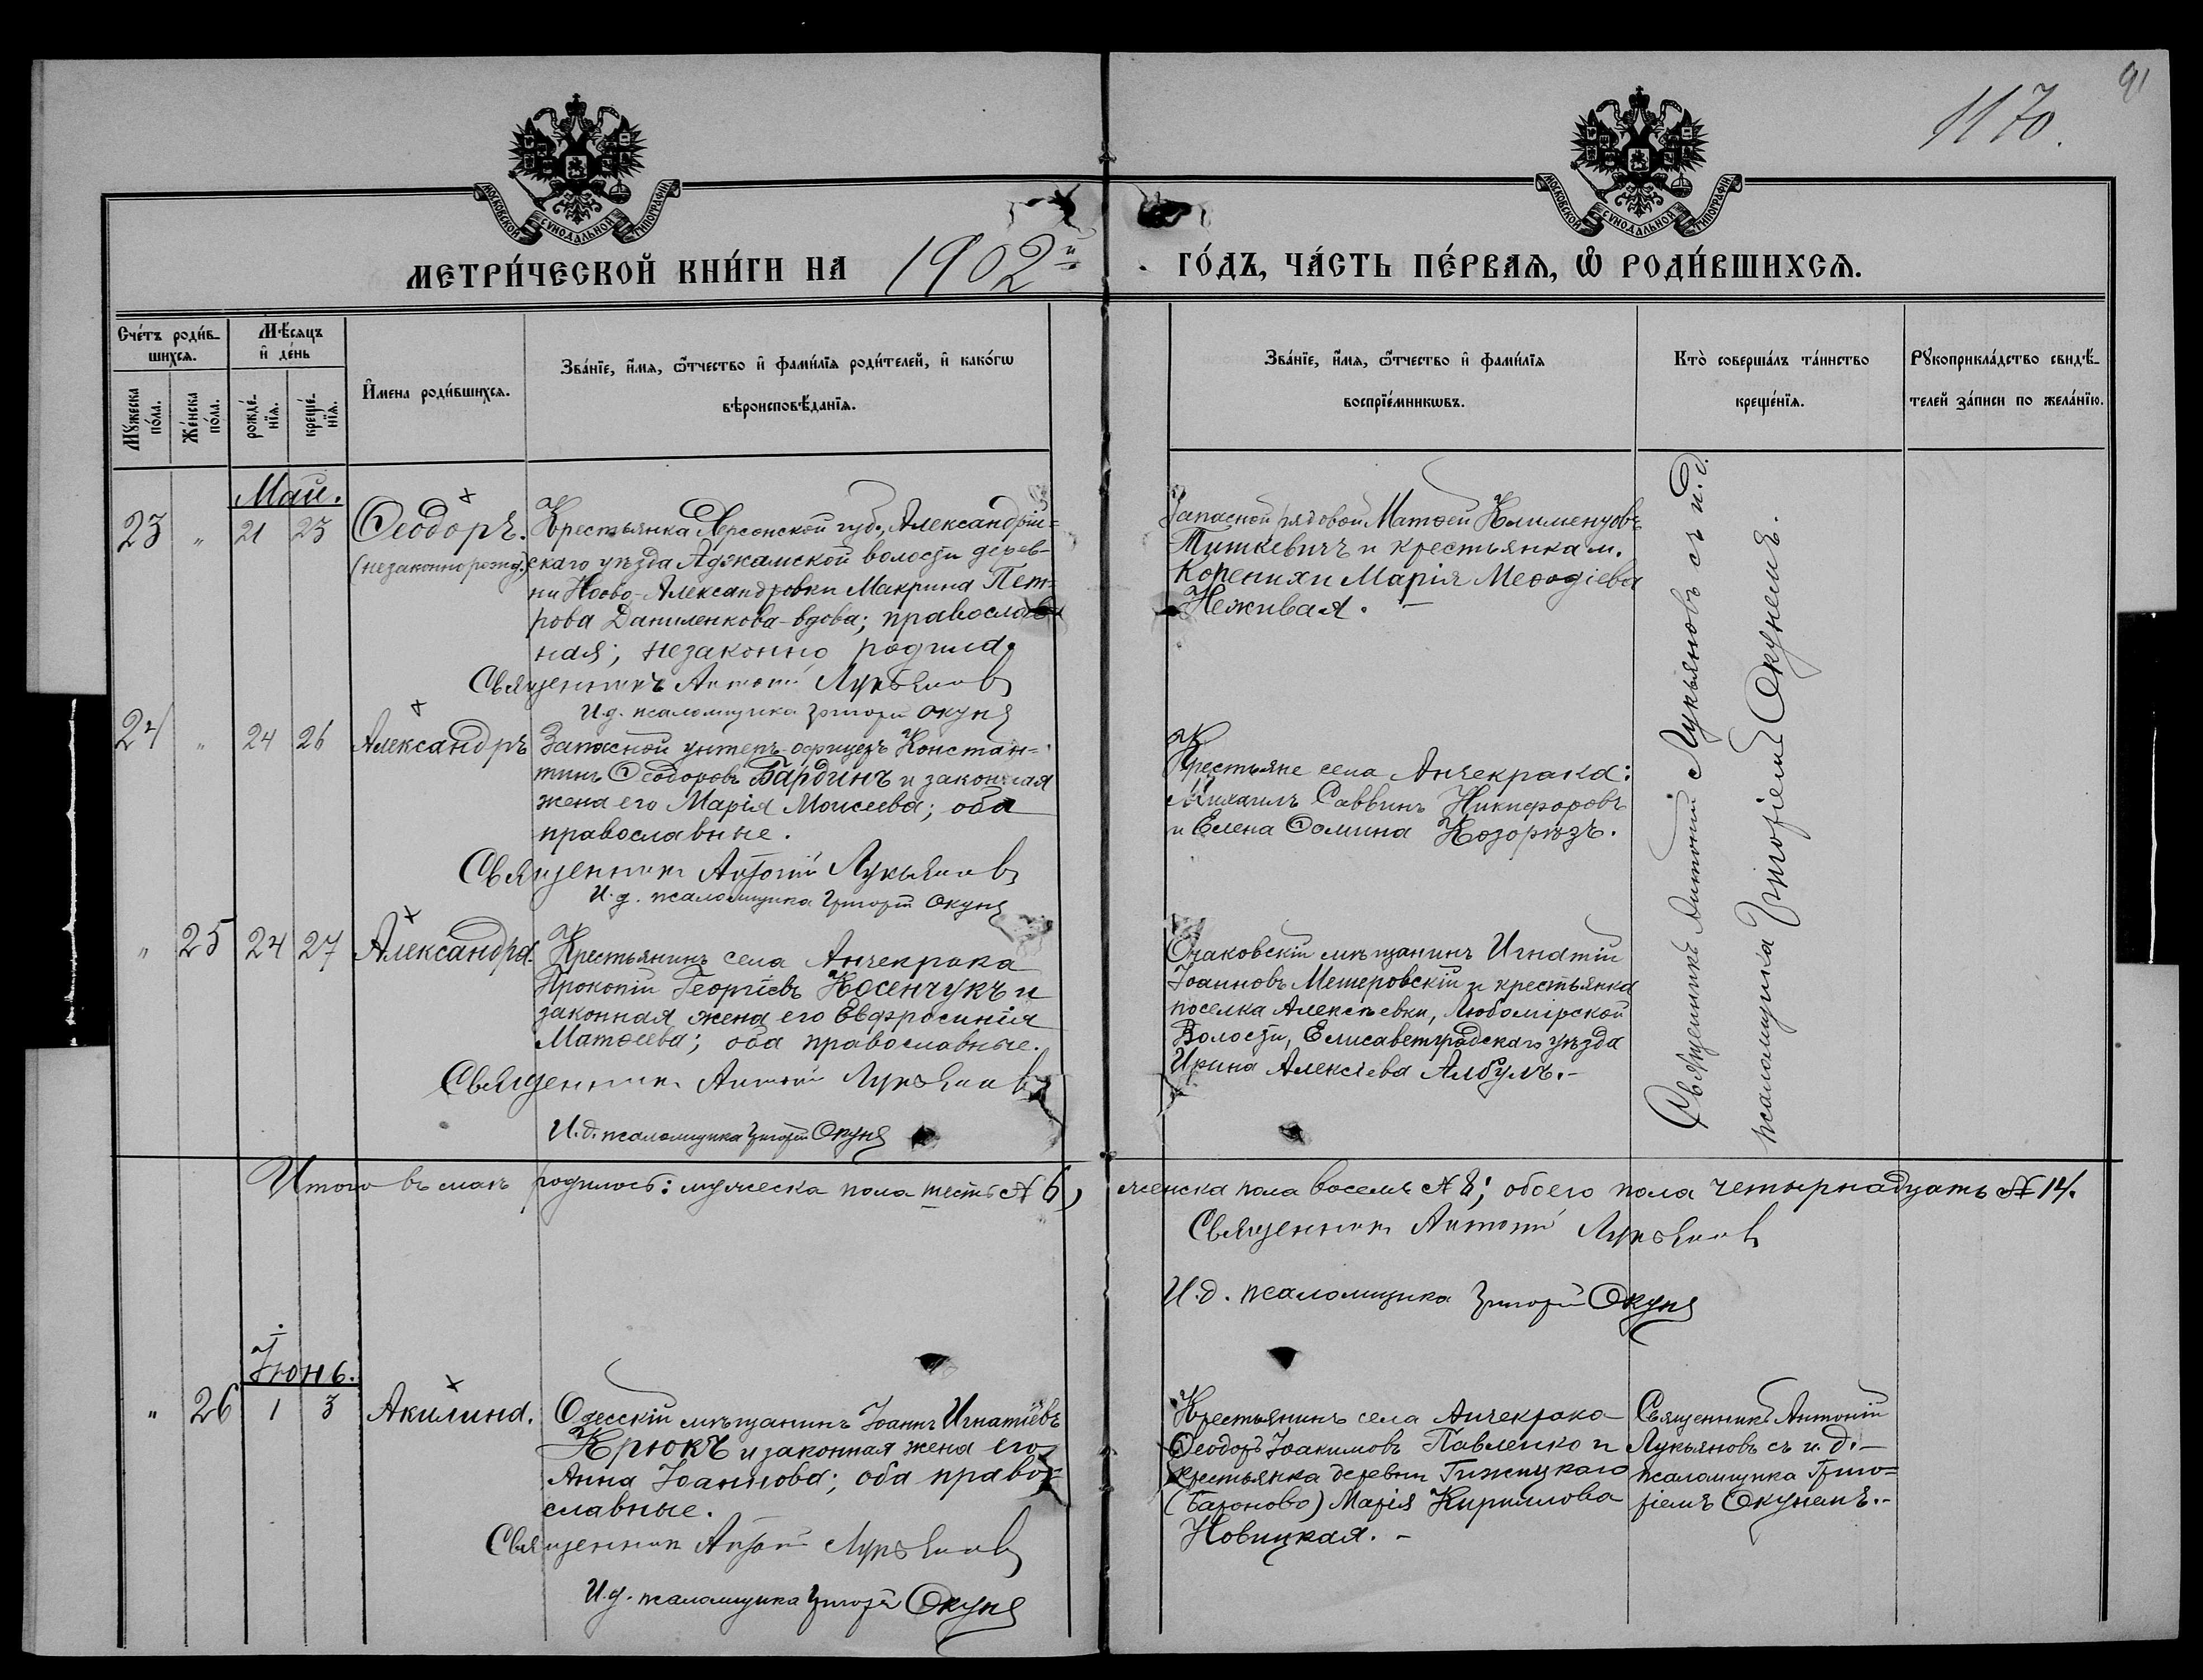 91
1170.
МОСКОВСКОЙ СѴНОДАЛЬНОЙ ТИПОГРАФІИ
МОСКОВСКОЙ СѴНОДАЛЬНОЙ ТИПОГРАФІИ
МЕТРИ́ЧЕСКОЙ КНИ́ГИ НА 1902й
ГО́ДЪ, ЧА́СТЬ ПЕ́РВАѦ, Ѡ҆ РОДИ́ВШИХСѦ.
Сче́тъ роди́в-
шихсѧ.
Мѣ́сѧцъ
и҆ де́нь
Мꙋ́жеска по́ла.
Же́нска по́ла.
рожде́-
нїѧ.
креще́-
нїѧ.
И҆мена роди́вшихсѧ.
Зва́нїе, и҆́мѧ, ѻ҆́тчество и҆ фами́лїѧ роди́телей, и҆ како́гѡ
вѣроисповѣ́данїѧ.
Зва́нїе, и҆́мѧ, ѻ҆́тчество и҆ фами́лїѧ
воспрїе́мникѡвъ.
Кто̀ соверша́лъ та́инство
креще́нїѧ.
Рꙋкоприкла́дство свидѣ́-
телей за́писи по жела́нїю.
Май.
23 " 21 23 Ѳеодоръ.
(незаконнорожд.)
Крестьянка Херсонской губ., Александрій=
скаго уѣзда Аджамской волости дерев-
ни Ново-Александровки Макрина Пет-
рова Даниленкова-вдова; православ
ная; незаконно родила.
Священникъ Антоній Лукьянов
И.д. псаломщика Григорій Окунь
Запасной рядовой Матѳей Климентовъ
Титкевичъ и крестьянка м.
Коренихи Марія Меѳодіева
Неживая. -
24 " 24 26 Александръ
Запасной унтеръ-офицеръ Констан=
тинъ Ѳеодоровъ Бардинъ и законная
жена его Марія Моисеева; оба
православные.
Священник Антоній Лукьянов
И.д. псаломщика Григорій Окунь
Крестьяне села Анчекрака:
Михаилъ Саввинъ Никифоровъ
и Елена Ѳомина Козорѣзъ.
" 25 24 27 Александра.
Крестьянинъ села Анчекрака
Прокопій Георгіевъ Косенчукъ и
законная жена его Евфросинія
Матѳеева; оба православные.
Священник Антоній Лукьянов
И.д. псаломщика Григорій Окунь
Очаковскій мѣщанинъ Игнатій
Іоанновъ Мешеровскій и крестьянка
поселка Алексѣевки, Любомірской
Волости, Елисаветградскаго уѣзда
Ирина Алексіева Албулъ.-
Священникъ Антоній Лукьяновъ съ и.д.
псаломщика Григоріемъ Окунемъ.
Итого въ маѣ родилось: мужеска пола шесть № 6, женска пола восемь № 8; обоего пола четырнадцать № 14.
Священник Антоній Лукьянов
И.д. псаломщика Григорій Окунь
Іюнь.
" 26 1 3 Акилина.
Одесскій мѣщанинъ Іоаннъ Игнатіевъ
Крюкъ и законная жена его
Анна Іоаннова; оба право=
славные.
Священник Антоній Лукьянов
И.д. псаломщика Григорій Окунь
Крестьянинъ села Анчекрака
Ѳеодоръ Іоакимовъ Павленко и
крестьянка деревни Гижицкаго
(Баѳоново) Марія Кириллова
Новицкая. -
Священникъ Антоній
Лукьяновъ съ и.д.-
псаломщика Григо=
ріемъ Окунемъ.-